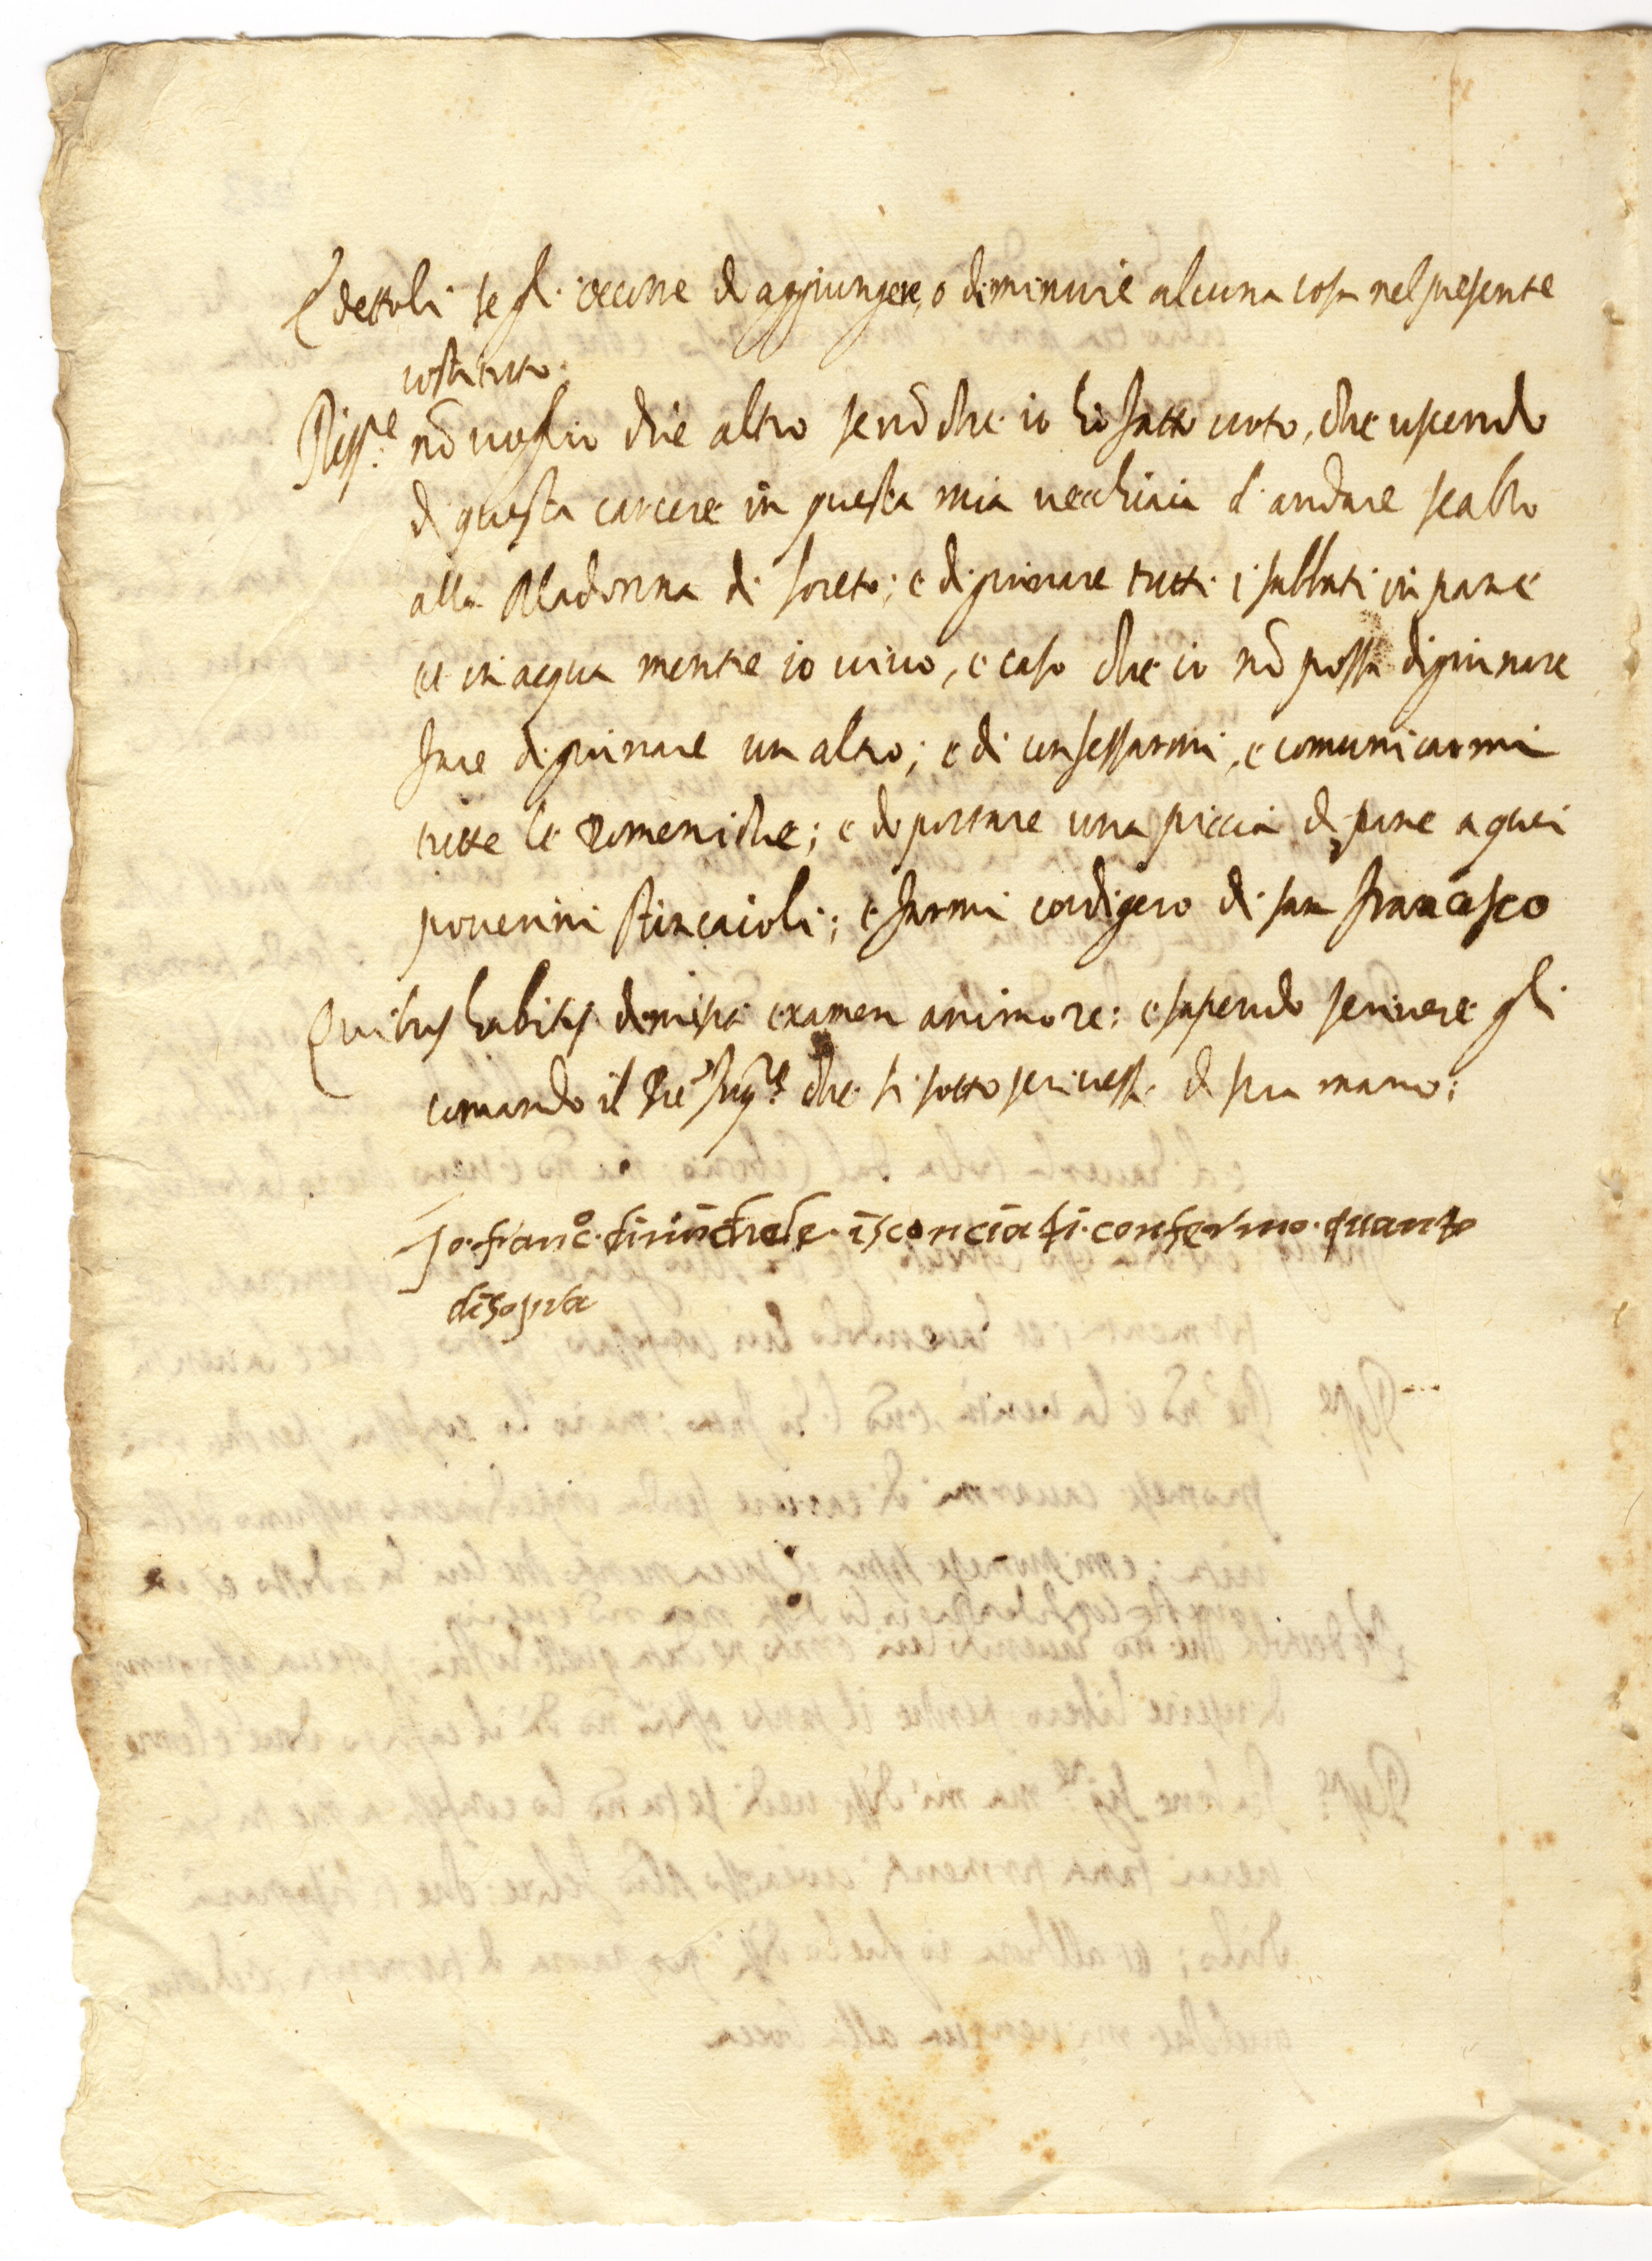 E dettoli se gli occorre di aggiungere, o diminuire alcuna cosa nel presente
costituto.
Risp.e nõ voglio dire altro se nõ che io hò fatto voto, che uscendo
di questa carcere in questa mia vecchiaia d'andare scalzo
alla Madonna di Loreto; e digiunare tutti i sabbati in pane
et in acqua mentre io vivo, e caso che io nõ possa digiunare
fare digiunare un altro; e di confessarmi, e comunicarmi
tutte le Domeniche; e di portare una piccia di pane a quei
poverini stincaioli; e farmi cordigero di san francesco
Quibus habitis dimisit examen animo re: e sapendo scrivere gli
comandò il Re Inq.re che si sotto scrivesse di sua mano:
Io franc.o di isconciati confermo quanto
disopra